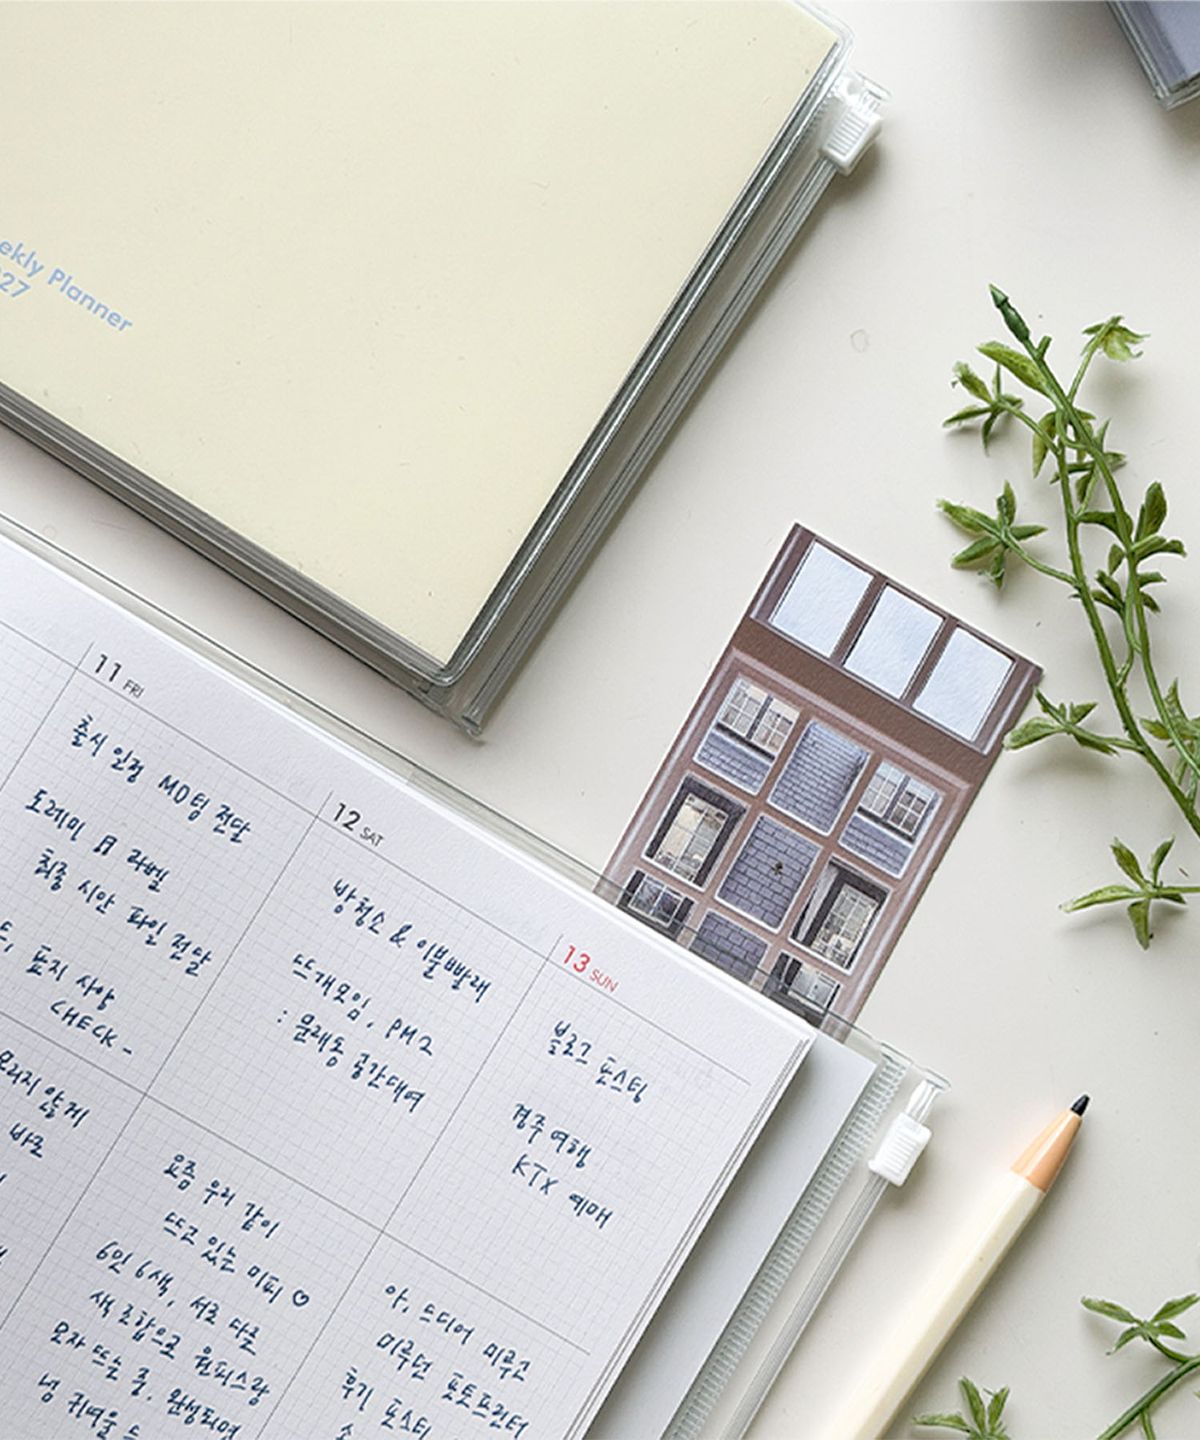 ekly Planner
27
11 FRI
출시 일정 MD팀 전달
도레미 라벨
최종 시안 파일 전달
표지 사양
CHECK_
모러지 않게
바로
12 SAT
방청소 & 이불빨래
뜨개모임, PM 2
: 문래동 공간대여
요즘 우리 같이
뜨고 있는 미피 ♡
6인 6색, 서로 다른
색 조합으로 원피스랑
모자 뜨는 중. 완성되면
넘 귀여울
13 SUN
블로그 포스팅
경주 여행
KTX 예매
아, 드디어 미루고
미루던 포토프린터
후기 포스팅